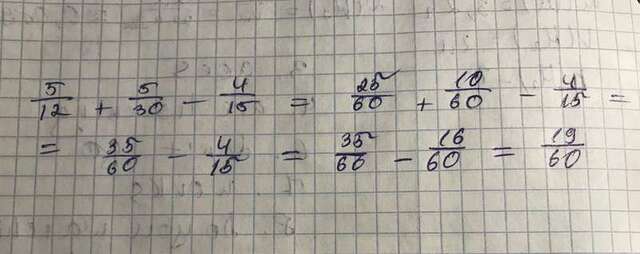 5/12 + 5/30 - 4/15 = 25/60 + 10/60 - 4/15 =
= 35/60 - 4/15 = 35/60 - 16/60 = 19/60